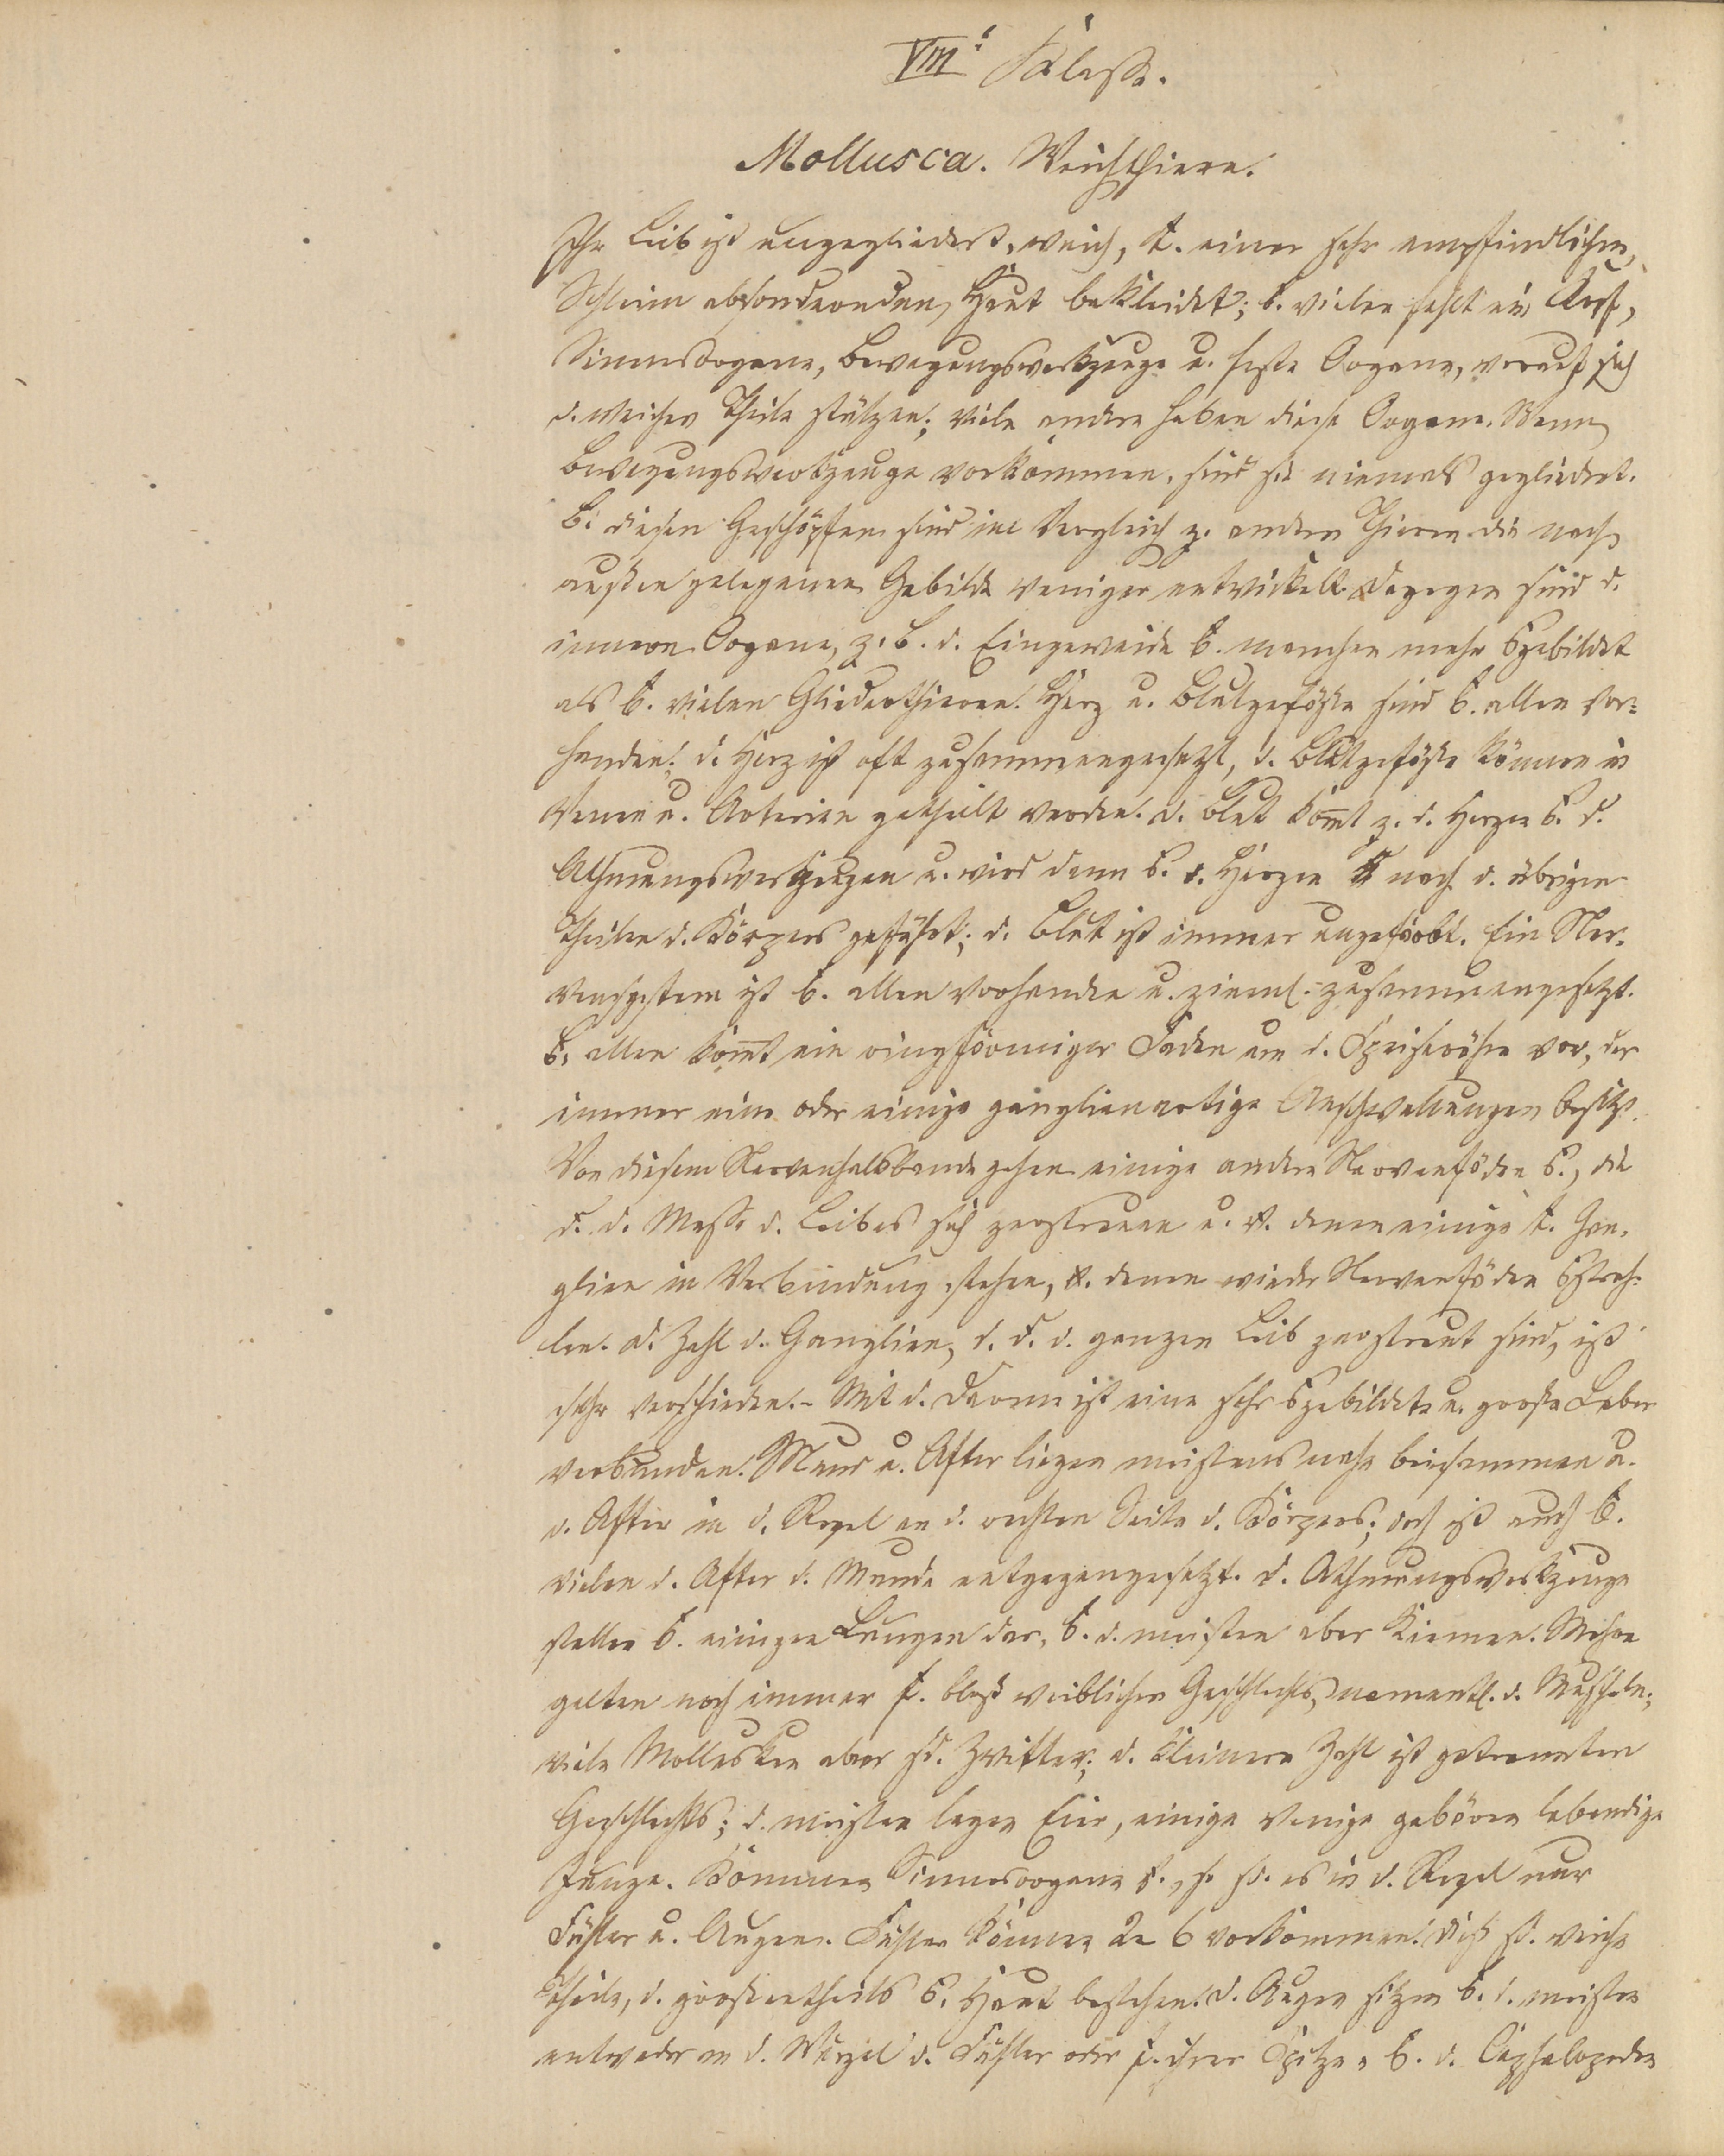 VIII. Klasse.
Mollusca. Weichthiere.
Ihr Leib ist ungegliedert, weich, v. einer sehr empfindlichen,
Schleim absondernden Haut bekleidet; b. vielen fehlt ein Kopf,
Sinnesorgane, Bewegungswerkzeuge u. feste Organe, worauf sich
d. weichen Theile stützen; viele andre haben diese Organe. Wenn
Bewegungswerkzeuge vorkommen, sind sie niemals gegliedert.
B. diesen Geschöpfen sind im Vergleich z. andren Thieren die nach
außen gelegenen Gebilde weniger entwickelt. Dagegen sind d.
innern Organe, z. B. d. Eingeweide b. manchen mehr ausgebildet
als b. vielen Gliederthieren. Herz u. Blutgefäße sind b. allen vor-
handen; d. Herz ist oft zusammengesetzt, d. Blutgefäße können in
Venen u. Arterien getheilt werden. D. Blut kömt z. d. Herzen aus d.
Athmungswerkzeugen u. wird dann aus d. Herzen nach d. übrigen
Theilen d. Körpers geführt; d. Blut ist immer ungefärbt. Ein Ner-
vensystem ist b. allen vorhanden u. zieml. zusammengesetzt.
B. allen kömt ein ringförmiger Faden um d. Speiseröhre vor, der
immer eine oder einige ganglienartige Anschwellungen besitzt.
Von diesem Nervenhalsbande gehen einige andre Nervenfäden aus, die
d. d. Masse d. Leibes sich zerstreuen u. v. denen einige m. Gan-
glien in Verbindung stehen, v. denen wieder Nervenfäden ausstrah-
len. D. Zahl d. Ganglien, d. d. d. ganzen Leib zerstreut sind, ist
sehr verschieden. – Mit d. Darm ist eine sehr ausgebildete u. große Leber
verbunden. Mund u. After liegen meistens nahe beisammen u.
d. After in d. Regel an d. rechten Seite d. Körpers; doch ist auch b.
vielen d. After d. Munde entgegengesetzt. D. Athmungswerkzeuge
stellen b. einigen Lungen dar, b. d. meisten aber Kiemen. Mehre
gelten noch immer f. bloß weiblichen Geschlechts, namentl. d. Muscheln;
viele Mollusken aber sd. Zwitter; d. kleinere Zahl ist getrennten
Geschlechts; d. meisten legen Eier, einige wenige gebären lebendige
Junge. Kommen Sinnesorgane v., so sd. es in d. Regel nur
Fühler u. Augen. Fühler können 2–6 vorkommen. Dieß sd. weiche
Theile, d. größtentheils aus Haut bestehen. D. Augen sitzen b. d. meisten
entweder an d. Wurzel d. Fühler oder a. ihrer Spitze. B. d. Cephalopoden